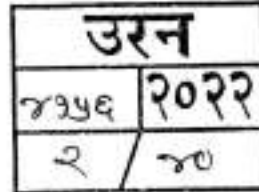 उरन
४१५६ २०२२
२ / ४०